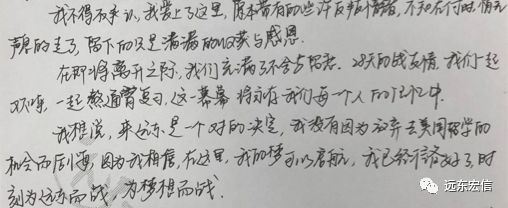 我不得不承认,我爱上了这里,原本带有的些许反感情绪,不知在何时,悄无
声息的走了,留下的只是满满的收获与感恩.
在即将离开之际,我们充满了不舍与留恋. 28天的战友情,我们一起
欢呼,一起熬通宵复习,这一幕幕将永存我们每一个人的记忆中.
我想说,来远东是一个对的决定,我没有因为放弃去美国留学的
机会而后悔,因为我相信,在这里,我的梦可以启航,我已经准备好了,时
刻为远东而战,为梦想而战.
远东宏信